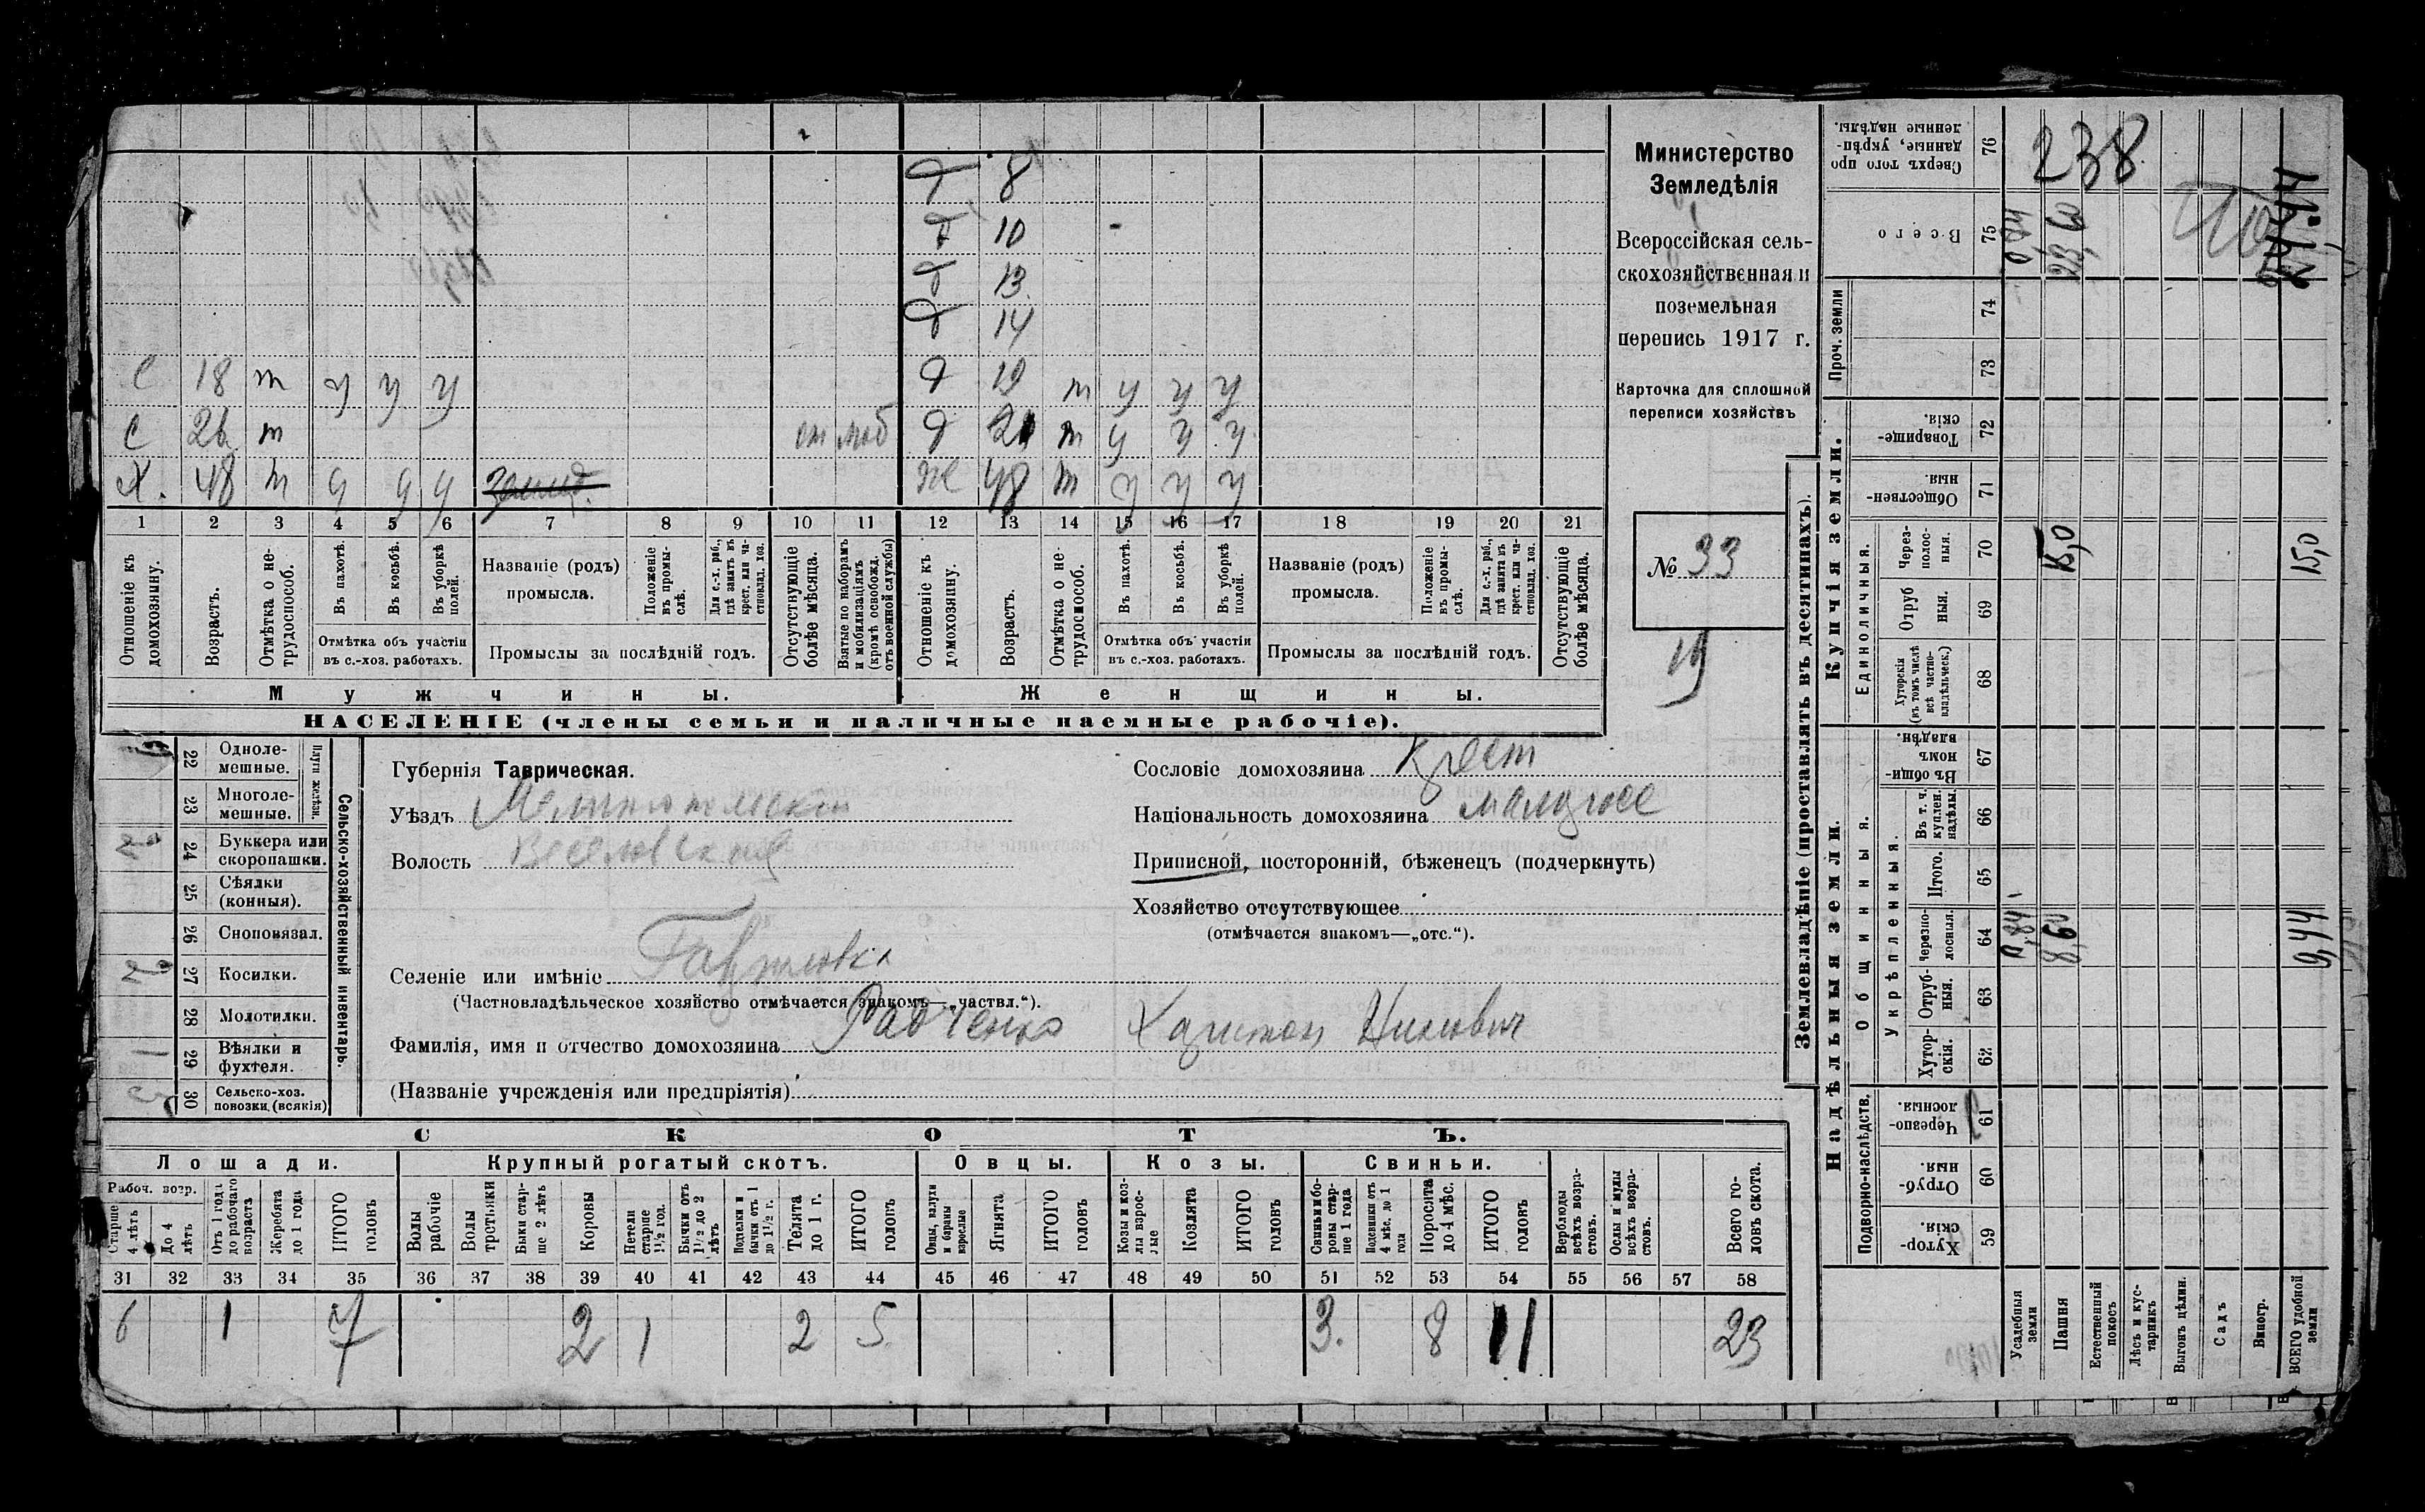 Министерство
Земледѣлія
Всероссійская сель-
скохозяйственная и
поземельная
перепись 1917 г.
Карточка для сплошной
переписи хозяйствъ
№ 33
д 8
д 10
д 13
д 14
С 18 т у у у д 19 т у у у
С 26 т от моб д 21 т у у у
Х. 48 т у у у землед. же 48 т у у у
1 2 3 4 5 6 7 8 9 10 11 12 13 14 15 16 17 18 19 20 21
Отношеніе къ домохозяину.
Возрастъ.
Отмѣтка о не-трудоспособ.
Въ пахотѣ.
Въ косьбѣ.
Въ уборкѣ полей.
Отмѣтка объ участіи
въ с.-хоз. работахъ.
Названіе (родъ)
промысла.
Положеніе въ промы-слѣ.
Для с.-х. раб., гдѣ занятъ въ крест. или ча-стновлад. хоз.
Промыслы за послѣдній годъ.
Отсутствующіе болѣе мѣсяца.
Взятые по наборамъ и мобилизаціямъ (кромѣ освобожд. отъ военной службы)
Отношеніе къ домохозяину.
Возрастъ.
Отмѣтка о не-трудоспособ.
Въ пахотѣ.
Въ косьбѣ.
Въ уборкѣ полей.
Отмѣтка объ участіи
въ с.-хоз. работахъ.
Названіе (родъ)
промысла.
Положеніе въ промы-слѣ.
Для с.-х. раб., гдѣ занята въ крест. или ча-стновлад. хоз.
Промыслы за послѣдній годъ.
Отсутствующіе болѣе мѣсяца.
Мужчины. Женщины.
НАСЕЛЕНІЕ (члены семьи и наличные наемные рабочіе).
Сельско-хозяйственный инвентарь.
Плуги желѣзн.
22 Одноле-мешные.
23 Многоле-мешные.
24 Буккера или скоропашки.
25 Сѣялки (конныя).
26 Сноповязал.
27 Косилки.
28 Молотилки.
1 29 Вѣялки и фухтеля.
30 Сельско-хоз. повозки (всякія)
Губернія Таврическая.
Уѣздъ Мелитопольскій
Волость Веселовская
Селеніе или имѣніе Гавриловка
(Частновладѣльческое хозяйство отмѣчается знакомъ—„частвл.“).
Фамилія, имя и отчество домохозяина Радченко Харитон Нилович
(Названіе учрежденія или предпріятія)
Сословіе домохозяина крест
Національность домохозяина малорос
Приписной, посторонній, бѣженецъ (подчеркнуть)
Хозяйство отсутствующее
(отмѣчается знакомъ—„отс.“).
СКОТЪ.
Лошади. Крупный рогатый скотъ. Овцы. Козы. Свиньи.
Рабоч. возр.
Старше 4 лѣтъ
До 4 лѣтъ
Отъ 1 года до рабочаго возраста
Жеребята до 1 года
ИТОГО головъ
Волы рабочіе
Волы третьяки
Быки стар-ше 2 лѣтъ
Коровы
Нетели старше 1½ год.
Бычки отъ 1½ до 2 лѣтъ
Подтелки и бычки отъ 1 до 1½ г.
Телята до 1 г.
ИТОГО головъ
Овцы, валухи и бараны взрослые
Ягнята
ИТОГО головъ
Козы и коз-лы взрос-лые
Козлята
ИТОГО головъ
Свиньи и бо-ровы стар-ше 1 года
Подсвинки отъ 4 мѣс. до 1 года
Поросята до 4 мѣс.
ИТОГО головъ
Верблюды всѣхъ возра-стовъ.
Ослы и мулы всѣхъ возра-стовъ.
Всего го-ловъ скота.
31 32 33 34 35 36 37 38 39 40 41 42 43 44 45 46 47 48 49 50 51 52 53 54 55 56 57 58
6 1 7 2 1 2 5 3. 8 11 23
Землевладѣніе (проставлять въ десятинахъ).
Надѣльныя земли. Купчія земли. Проч. земли
Подворно-наслѣдств.
Общинныя.
Укрѣпленныя.
Единоличныя.
Хутор-скія. 59
Отруб-ныя. 60
Черезпо-лосныя. 61
Хутор-скія. 62
Отруб-ныя. 63
Черезпо-лосныя. 64
Итого. 65
Въ т. ч. куплен. надѣлы. 66
Въ общи-номъ владѣн. 67
Хуторскія (въ томъ числѣ всѣ частно-владѣльческ.) 68
Отруб ныя. 69
Через-полос-ныя. 70
Обществен-ныя 71
Товарище-скія. 72
73
74
Всего 75
Сверхъ того про данные, укрѣп-ленные надѣлы. 76
238
Усадебныя земли 0,84 0,84
Пашня 8,60 15,0 23,60
Естественный покосъ
Лѣсъ и кус-тарникъ
Выгонъ цѣлин.
Садъ
Виногр.
ВСЕГО удобной земли 9,44 15,0 24,44